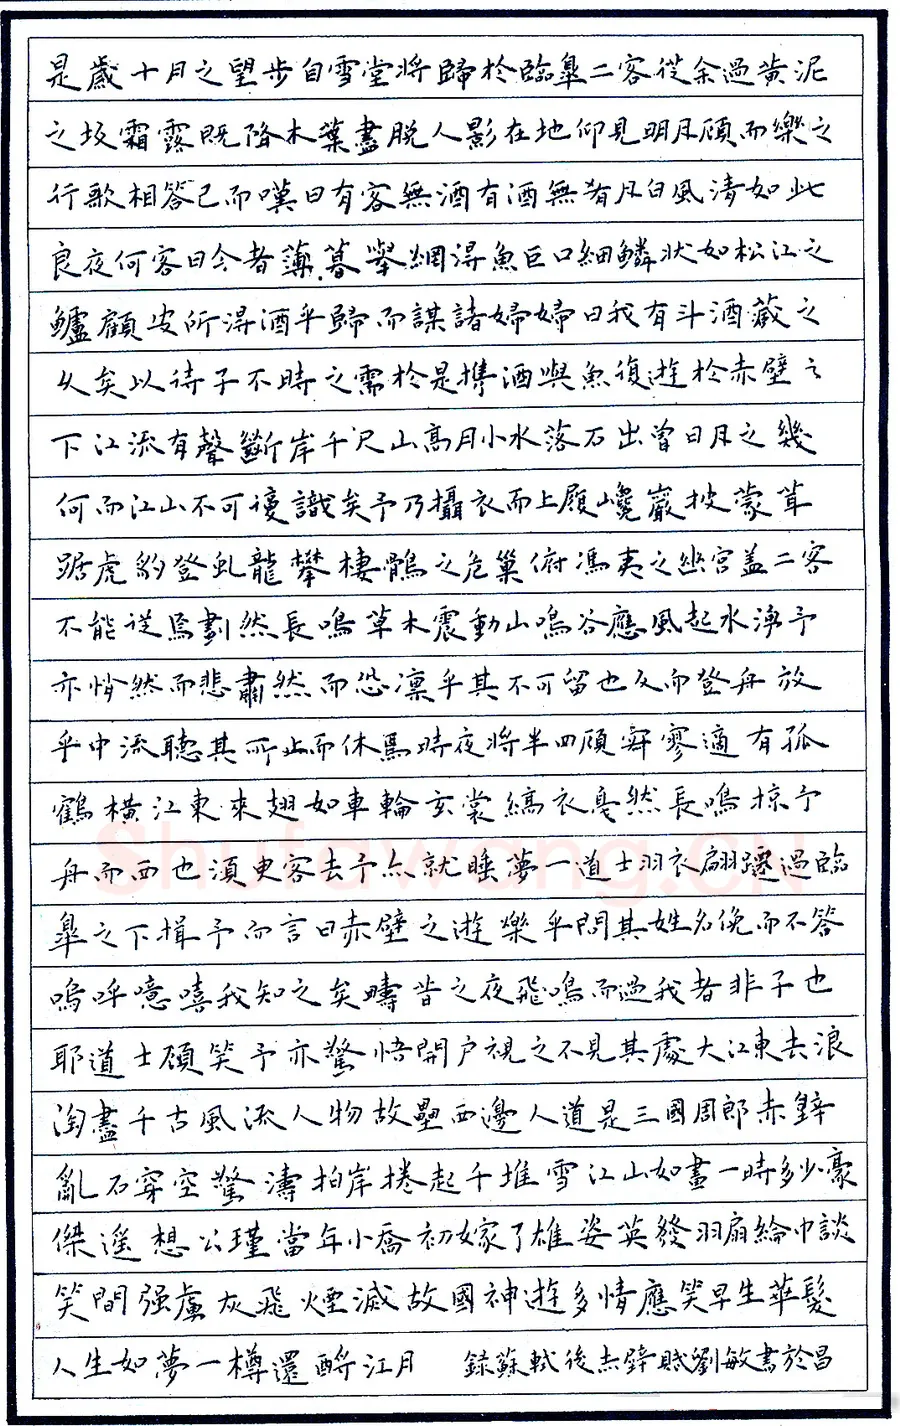 是歲十月之望步自雪堂將歸於臨臯二客從余過黃泥
之坂霜露既降木葉盡脫人影在地仰見明月顧而樂之
行歌相答已而嘆曰有客無酒有酒無肴月白風清如此
良夜何客曰今者薄暮舉網得魚巨口細鱗狀如松江之
鱸顧安所得酒乎歸而謀諸婦婦曰我有斗酒藏之
久矣以待子不時之需於是攜酒與魚復遊於赤壁之
下江流有聲斷岸千尺山高月小水落石出曾日月之幾
何而江山不可復識矣予乃攝衣而上履巉巖披蒙茸
踞虎豹登虬龍攀棲鶻之危巢俯馮夷之幽宮蓋二客
不能從焉劃然長鳴草木震動山鳴谷應風起水湧予
亦悄然而悲肅然而恐凜乎其不可留也反而登舟放
乎中流聽其所止而休焉時夜將半四顧寂寥適有孤
鶴橫江東來翅如車輪玄裳縞衣戛然長鳴掠予
舟而西也須臾客去予亦就睡夢一道士羽衣翩躚過臨
臯之下揖予而言曰赤壁之遊樂乎問其姓名俛而不答
嗚呼噫嘻我知之矣疇昔之夜飛鳴而過我者非子也
耶道士顧笑予亦驚悟開戶視之不見其處大江東去浪
淘盡千古風流人物故壘西邊人道是三國周郎赤壁
亂石穿空驚濤拍岸捲起千堆雪江山如畫一時多少豪
傑遙想公瑾當年小喬初嫁了雄姿英發羽扇綸巾談
笑間強虜灰飛煙滅故國神遊多情應笑早生華髮
人生如夢一樽還酹江月 録蘇軾後赤壁賦劉敏書於昌
Shufawang.CN